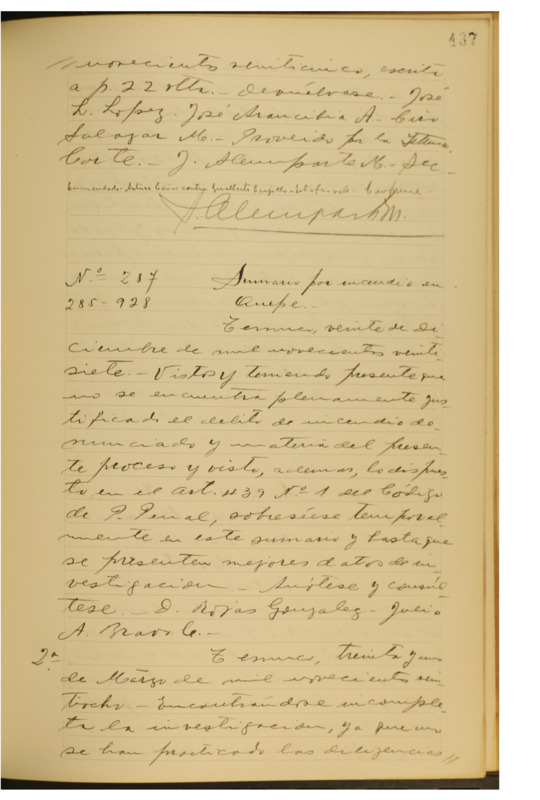 437
novecientos veinticinco, escrita
a p. 22 vlta. - devuélvase. - José
L. Lopez. José Arancibia A. Ciro
Salazar M. - Proveido por la Iltma.
Corte. - J. Alemparte M. - Sec. -
Enmendado
J. Alemparte M.
N.º 287 Sumario por incendio en
285-928 Quepe. -
Temuco, veinte de di-
ciembre de mil novecientos veinti-
siete. - Vistos y teniendo presente que
no se encuentra plenamente jus-
tificado el delito de incendio de-
nunciado y materia del presen-
te proceso y visto, además, lo dispues-
to en el art. 439 Nº 1 del Código
de P. Penal, sobreséese temporal-
mente en este sumario y hasta que
se presenten mejores datos de in-
vestigacion. - Anótese y consúl-
tese. - D. Rojas Gonzalez - Julio
A. Bravo C. -
2.ª Temuco, treinta y uno
de Marzo de mil novecientos vein-
tiocho. - Encontrándose incomple-
ta la investigacion, ya que no
se han practicado las diligencias //